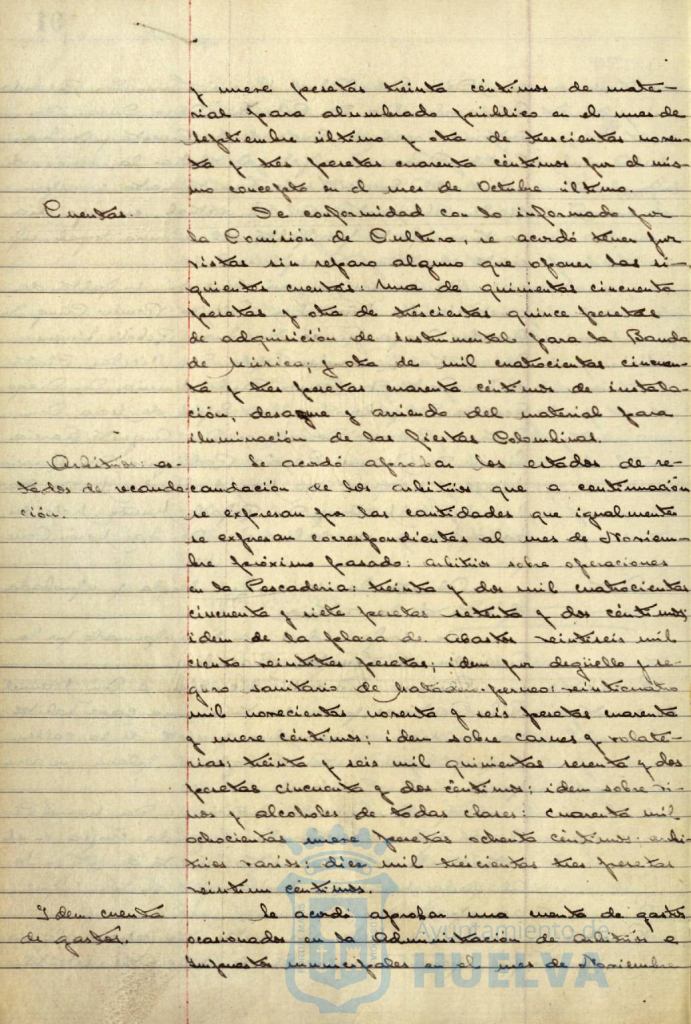 y nueve pesetas treinta céntimos de mate-
rial para alumbrado público en el mes de
Septiembre último y otra de trescientas noven-
ta y tres pesetas cuarenta céntimos por el mis-
mo concepto en el mes de Octubre último.
Cuentas.
Se conformidad con lo informado por
la Comisión de Cultura, se acordó tener por
vistas sin reparo alguno que oponer las si-
guientes cuentas: Una de quinientas cincuenta
pesetas y otra de trescientas quince pesetas
de adquisición de instrumental para la Banda
de Música; y otra de mil cuatrocientas cincuen-
ta y tres pesetas cuarenta céntimos de instala-
ción, desague y arriendo del material para
iluminación de las fiestas Colombinas.
Arbitrios: es-
tados de recauda-
ción.
Se acordó aprobar los estados de re-
caudación de los arbitrios que a continuación
se expresan por las cantidades que igualmente
se expresan correspondientes al mes de Noviem-
bre próximo pasado: arbitrios sobre operaciones
en la Pescadería: treinta y dos mil cuatrocientas
cincuenta y siete pesetas setenta y dos céntimos;
idem de la plaza de Abastos veintiseis mil
ciento veintitres pesetas; idem por degüello y se-
guro sanitario de Matadero-perneo: veinticuatro
mil novecientas noventa y seis pesetas cuarenta
y nueve céntimos; idem sobre carnes y volate-
rias: treinta y seis mil quinientas sesenta y dos
pesetas cincuenta y dos céntimos; idem sobre vi-
nos y alcoholes de todas clases: cuarenta mil
ochocientas nueve pesetas ochenta céntimos. arbi-
trios varios: diez mil trescientas tres pesetas
veintiun céntimos.
Idem. cuenta
de gastos.
Se acordó aprobar una cuenta de gastos
ocasionados en la Administración de Arbitrios e
Impuestos municipales en el mes de Noviembre
Ayuntamiento de
HUELVA